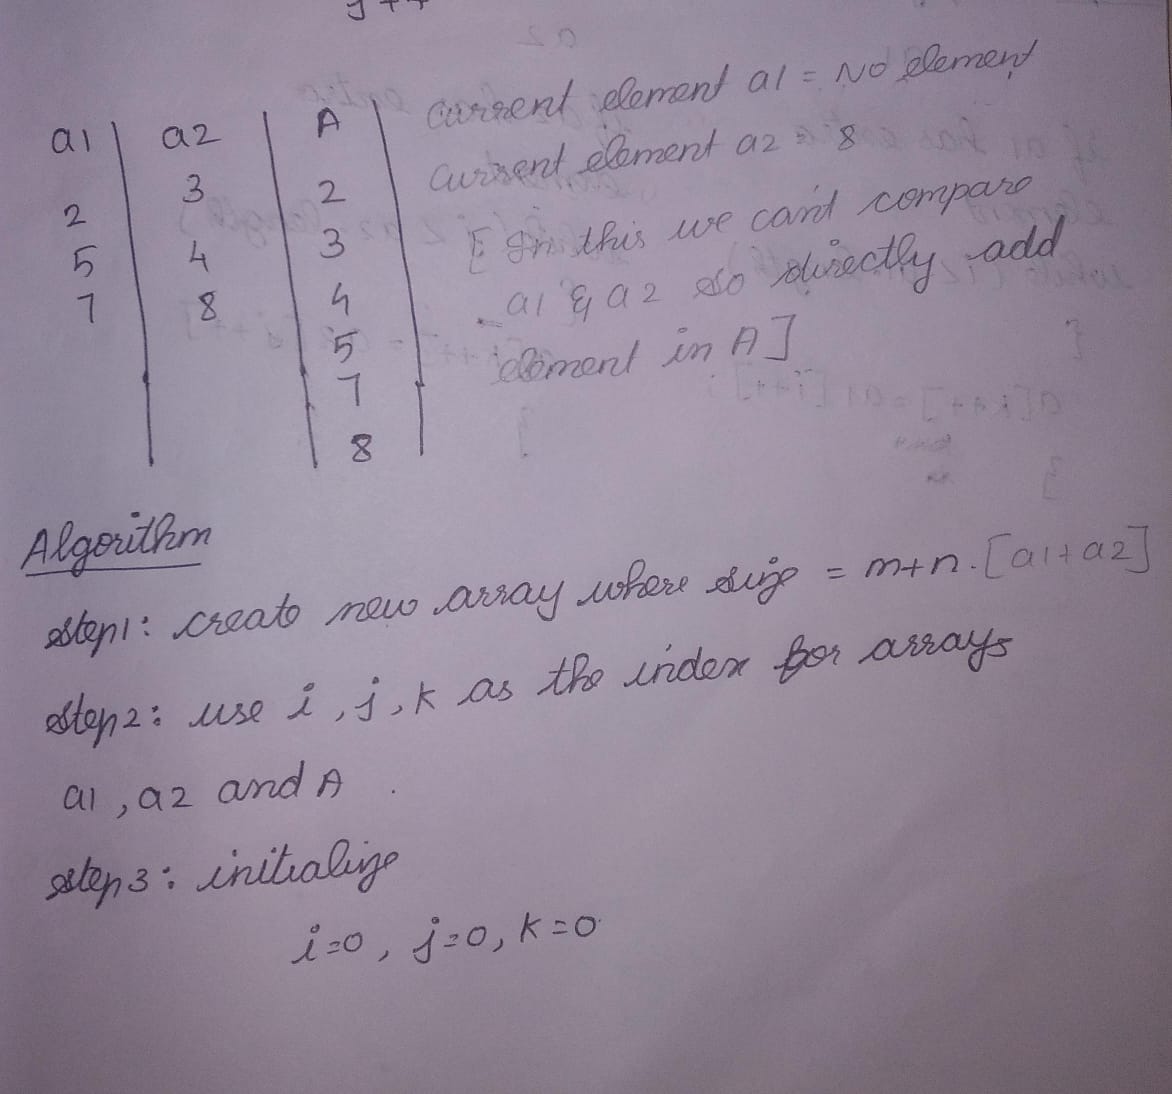 j++
a1 a2 A current element a1 = No element
2 3 2 current element a2 = 8
5 4 3 [ In this we can't compare
7 8 4 a1 & a2 so directly add
5 element in A ]
7
8
Algorithm
step1: create new array where size = m+n. [a1+a2]
step2: use i, j, k as the index for arrays
a1, a2 and A.
step3: initialize
i=0, j=0, k=0